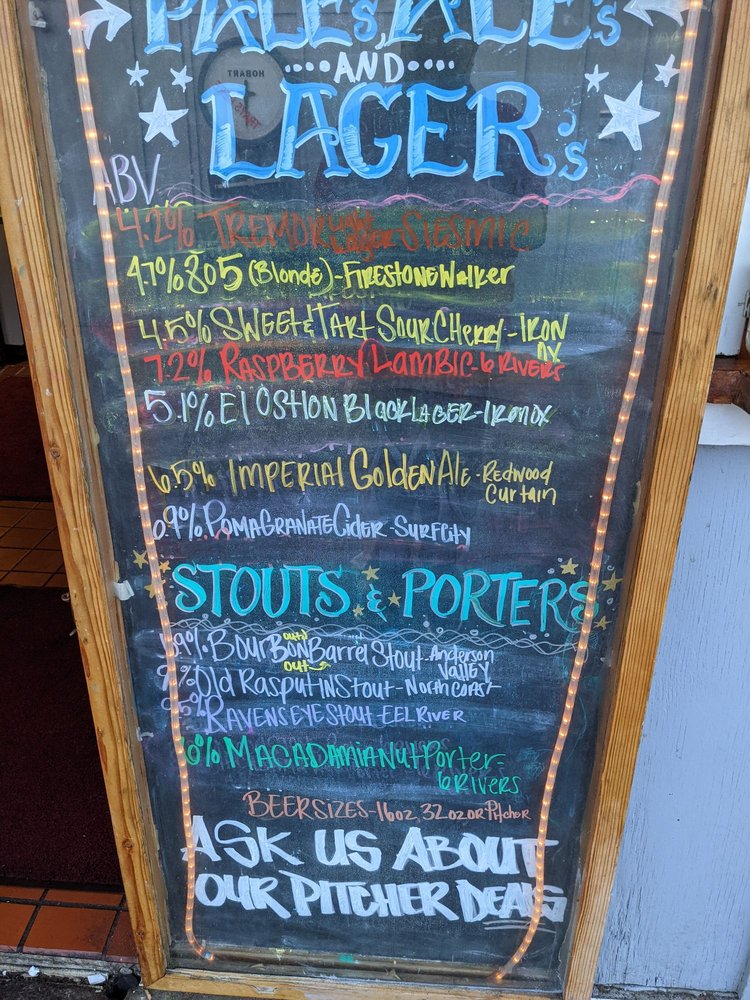 PALES, ALE's
AND
LAGERs
ABV
4.2% TREMOR Lager-SIESMIC
4.7% 805 (Blonde)-FIRESTONE WALKER
4.5% SWEET & TART SOUR CHERRY-IRON
OX
7.2% RASPBERRY LAMBIC-6 RIVERS
5.1% El OSTION BlaCK LAGER-IRON OX
6.5% IMPERIAL GOLDEN ALE-Redwood
Curtain
6.9% POMAGRANATE CIDER-SURFCITY
STOUTS & PORTERS
BOURBON Barrel Stout-Anderson
VALLEY
out!
out
9% Old RASPUTIN Stout-NORTH COAST
9.5% RAVENS EYE STOUT-EEL RIVER
6% MACADAMIA NUT PORTER-
6 RIVERS
BEER SIZES-16oz 32oz or Pitcher
ASK US ABOUT
OUR PITCHER DEALS
HOBART